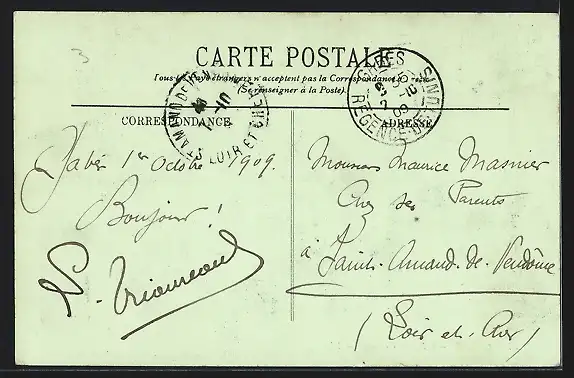 3
CARTE POSTALE
Tous les Pays étrangers n'acceptent pas la Correspondance au Recto
(Se renseigner à la Poste).
CORRESPONDANCE
ADRESSE
ST AMAND DE V
11-10
LOIR ET CHER
GABES
5-10
09
REGENCE DE TUNIS
Gabès 1er Octobre 1909.
Bonjour !
Monsieur Maurice Masnier
Chez ses Parents
à Saint-Amand-de-Vendôme
(Loir-et-Cher)